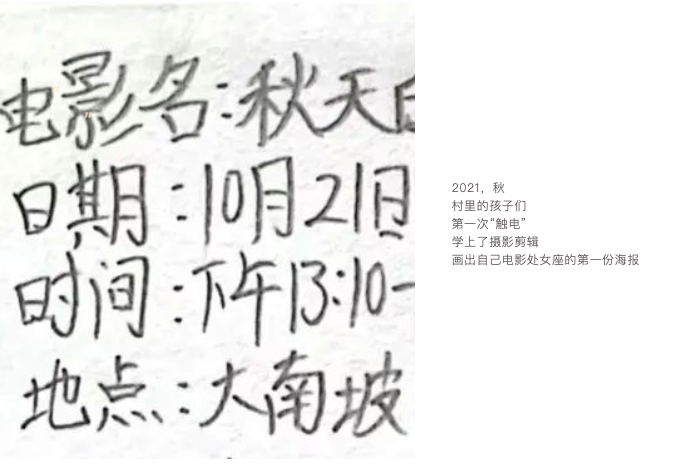 电影名:秋天
日期:10月21日
时间:下午13:10-
地点:大南坡
2021，秋
村里的孩子们
第一次“触电”
学上了摄影剪辑
画出自己电影处女座的第一份海报